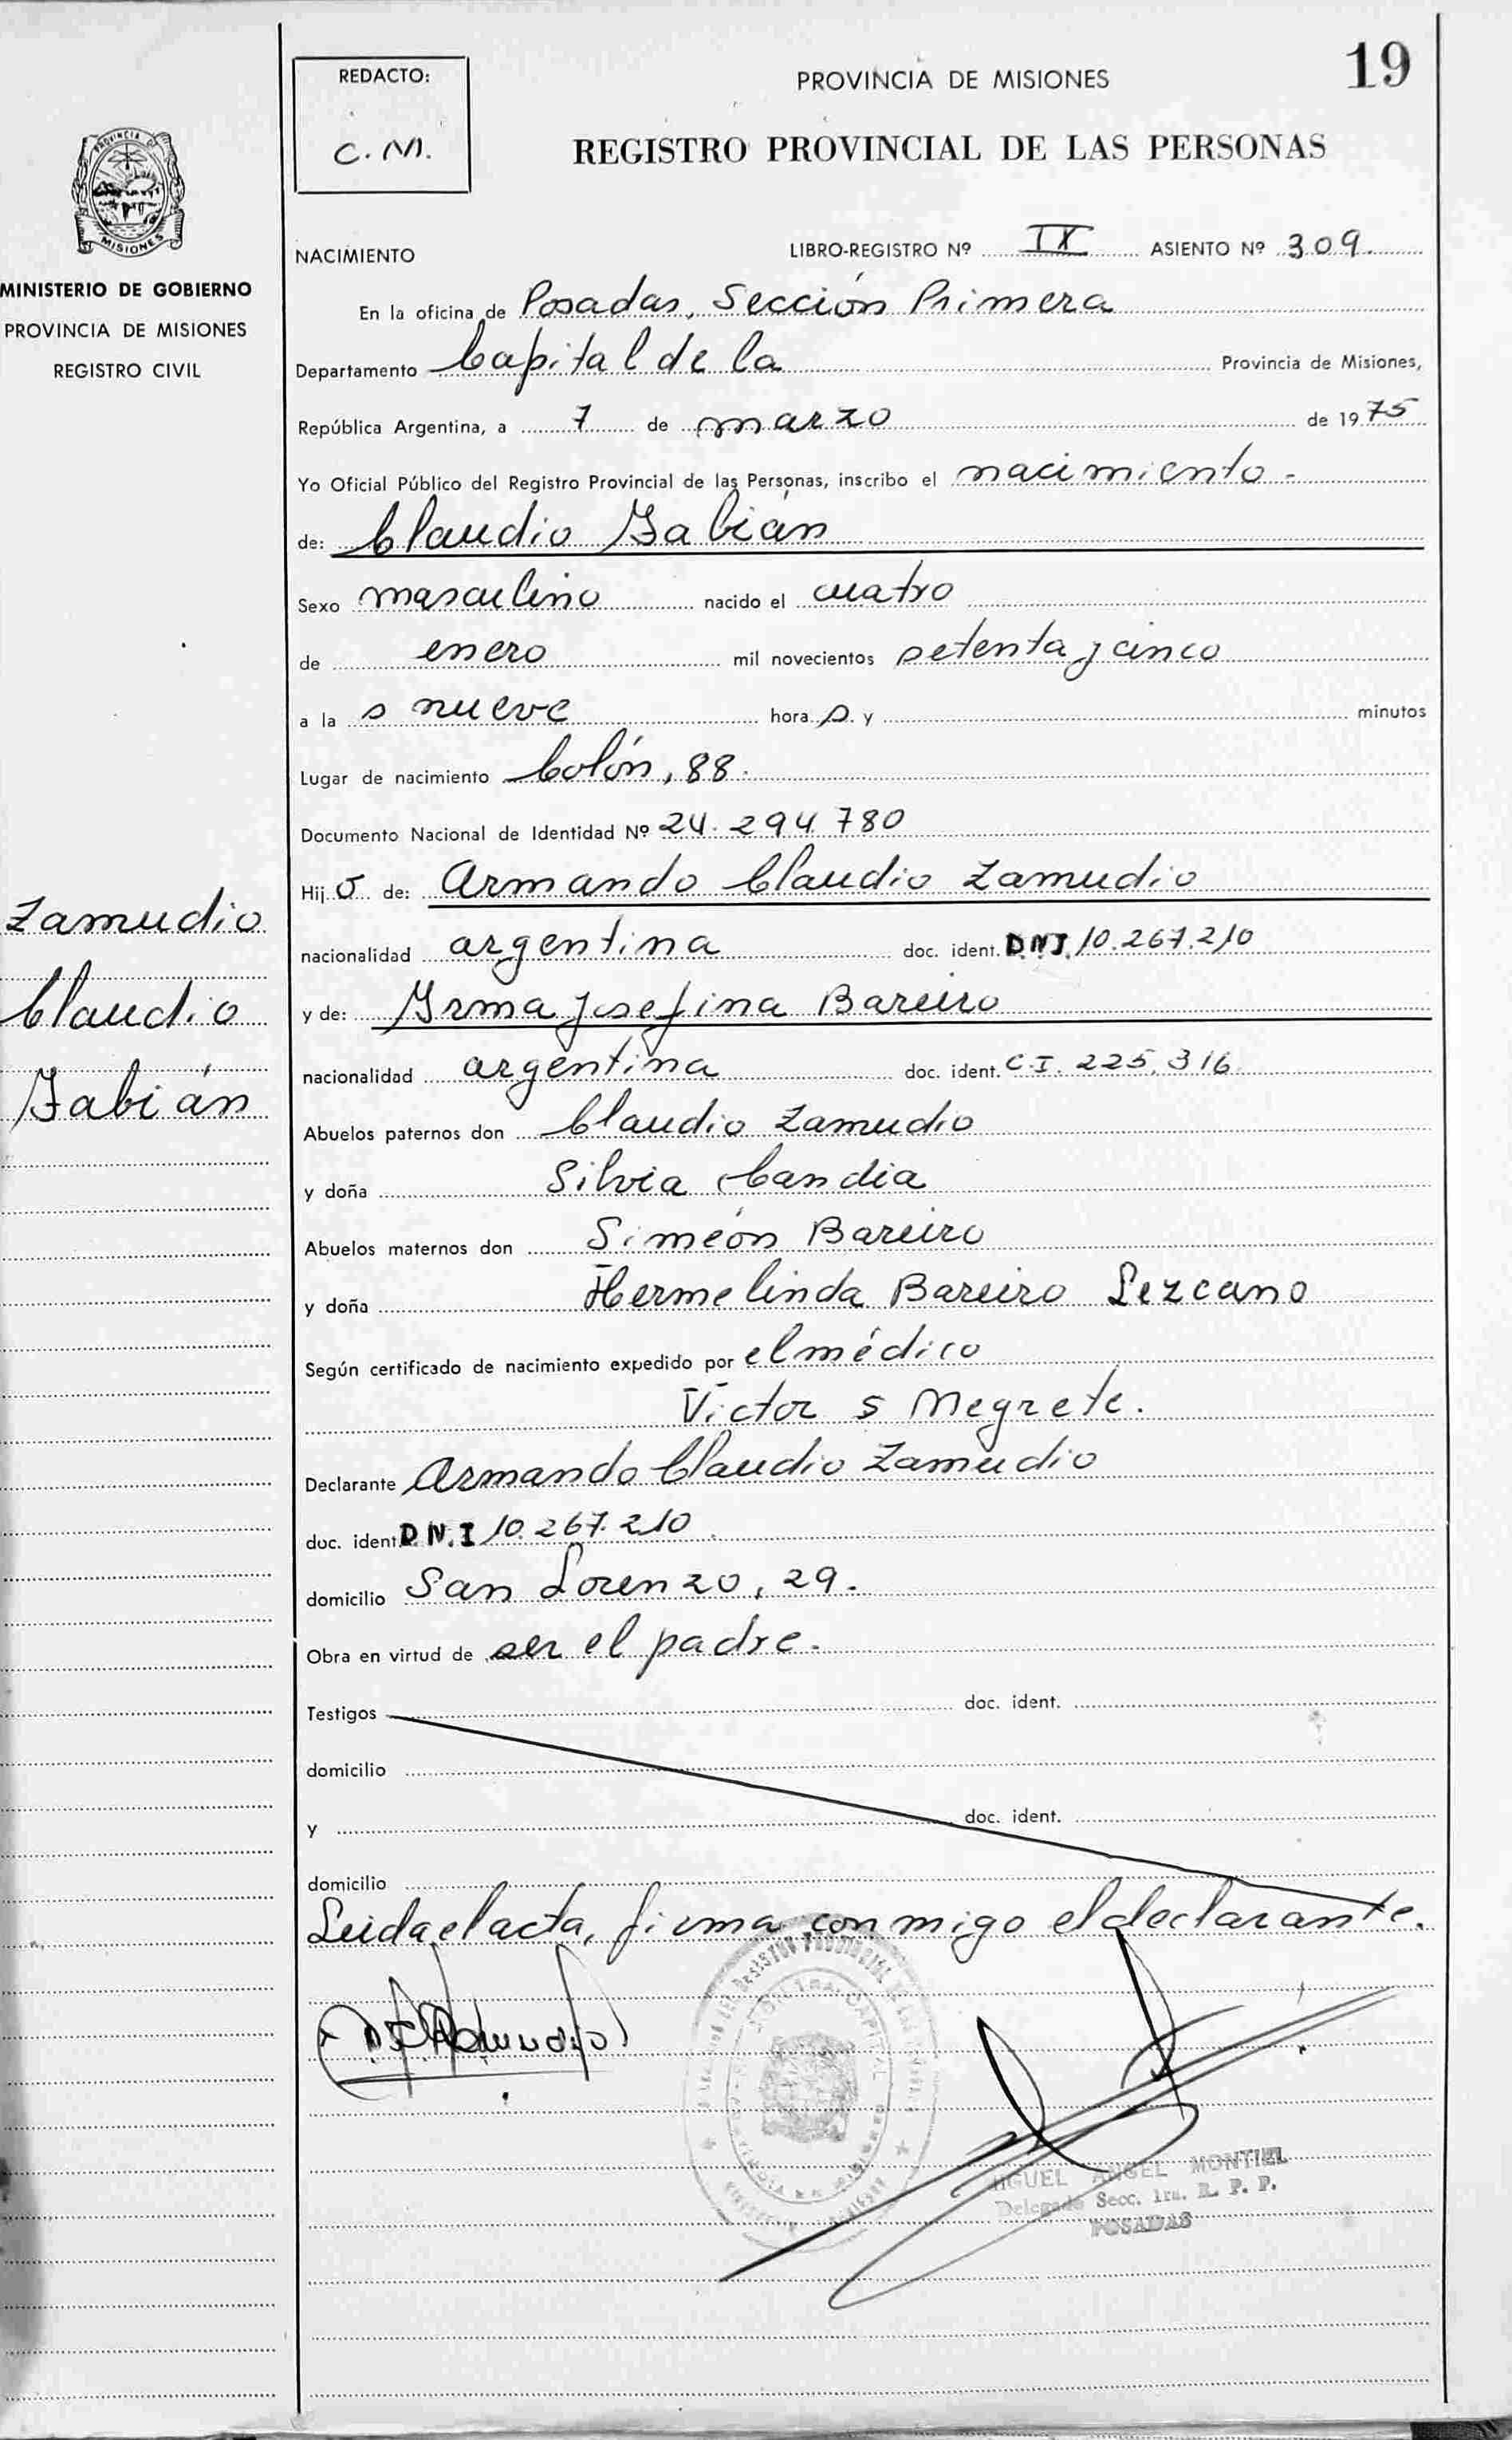 19
REDACTO:
C. M.
PROVINCIA DE MISIONES
REGISTRO PROVINCIAL DE LAS PERSONAS
PROVINCIA
MISIONES
MINISTERIO DE GOBIERNO
PROVINCIA DE MISIONES
REGISTRO CIVIL
NACIMIENTO LIBRO-REGISTRO Nº IX ASIENTO Nº 309
En la oficina de Posadas, Sección Primera
Departamento Capital de la Provincia de Misiones,
República Argentina, a 7 de marzo de 1975
Yo Oficial Público del Registro Provincial de las Personas, inscribo el nacimiento -
de: Claudio Fabián
Sexo masculino nacido el cuatro
de enero mil novecientos setenta y cinco
a la s nueve hora s y minutos
Lugar de nacimiento Colón, 88.
Documento Nacional de Identidad Nº 24.294.780
Hij o de: Armando Claudio Zamudio
nacionalidad argentina doc. ident. D.N.I. 10.267.210
y de: Irma Josefina Bareiro
nacionalidad argentina doc. ident. C.I. 225.316
Abuelos paternos don Claudio Zamudio
y doña Silvia Candia
Abuelos maternos don Simeón Bareiro
y doña Hermelinda Bareiro Lezcano
Según certificado de nacimiento expedido por el médico
Victor S Megrete.
Declarante Armando Claudio Zamudio
doc. ident. D.N.I 10.267.210
domicilio San Lorenzo, 29.
Obra en virtud de ser el padre.
Testigos doc. ident.
domicilio
y doc. ident.
domicilio
Leida el acta, firma conmigo el declarante.
Zamudio
Claudio
Fabián
MIGUEL ANGEL MONTIEL
Delegado Secc. 1ra. R. P. P.
POSADAS